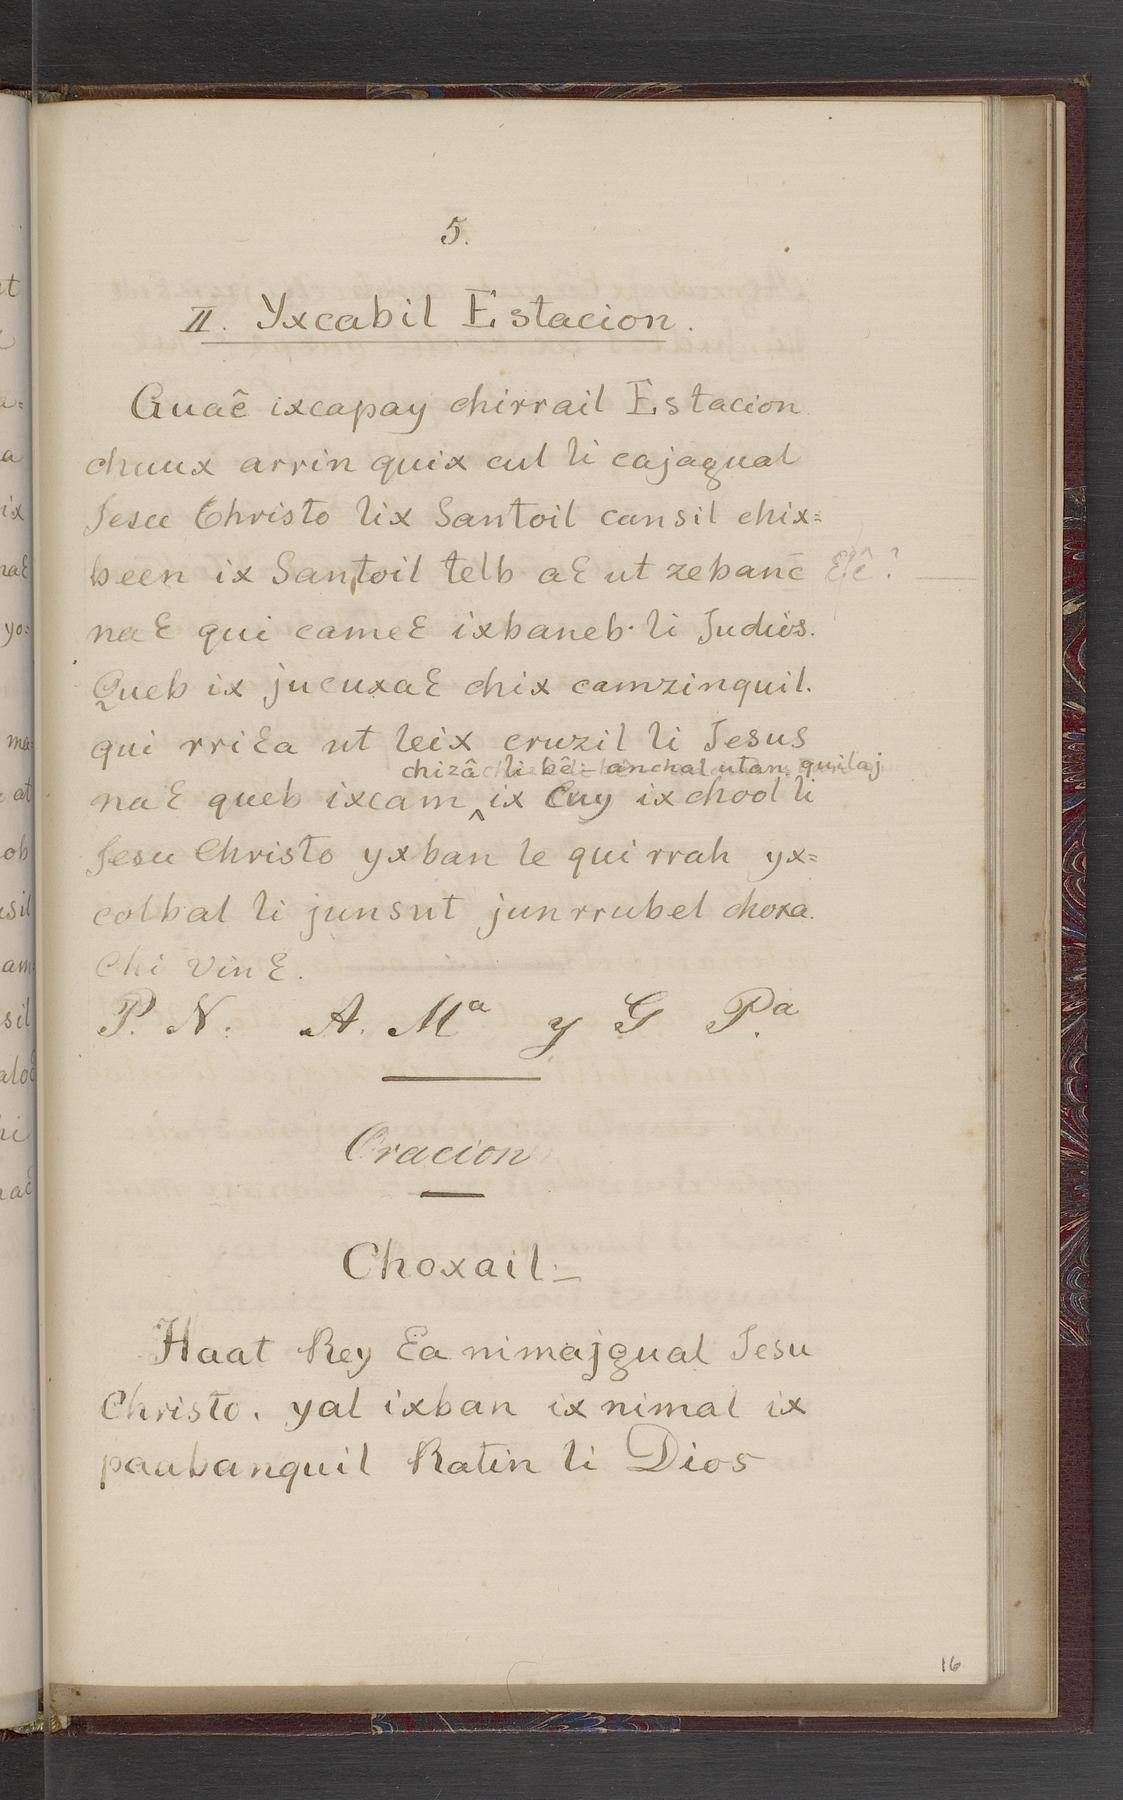 5.
II. Yxcabil Estacion.
Guaê ixcapay chirrail Estacion
chuux arrin quix cul li cajagual
Jesu Christo lix Santoil cansil chix=
been ix Santoil telb aƐ ut zebanē Ɛê?
naƐ qui cameƐ ixbaneb. li Judios.
Queb ix jucuxaƐ chix camzinquil.
qui rriƐa ut leix cruzil li Jesus
chizâ li bê= anchal utan quilaj
naƐ queb ixcam ‸ ix Cuy ix chool li
Jesu Christo yxban le qui rrah yx=
colbal li junsut junrrubel choxa.
Chi VinƐ.
P. N. A. Mª y G Pª
Oracion
Choxail=
Haat Rey Ɛa nimajgual Jesu
Christo. yal ixban ix nimal ix
paabanquil Ratin li Dios
16